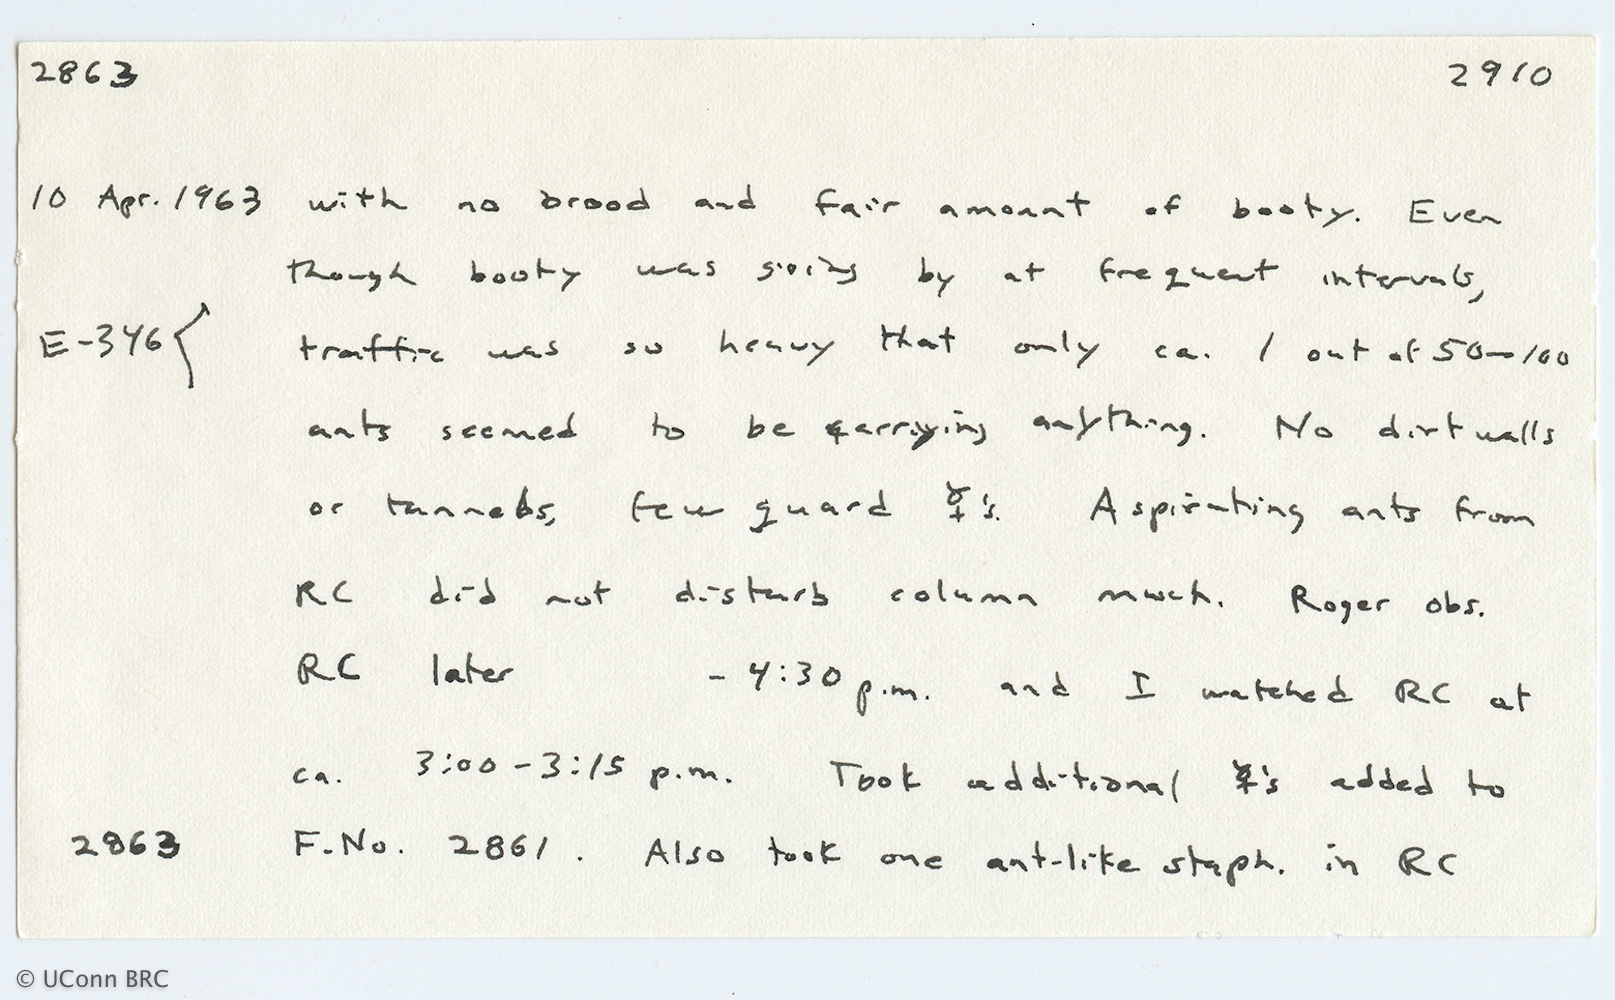 2863 2910
10 Apr. 1963 with no brood and fair amount of booty. Even
though booty was going by at frequent intervals,
E-346 { traffic was so heavy that only ca. 1 out of 50-100
ants seemed to be carrying anything. No dirt walls
or tunnels, few guard ☿'s. Aspirating ants from
RC did not disturb column much. Roger obs.
RC later - 4:30 p.m. and I watched RC at
ca. 3:00-3:15 p.m. Took additional ☿'s added to
2863 F. No. 2861. Also took one ant-like staph. in RC
© UConn BRC